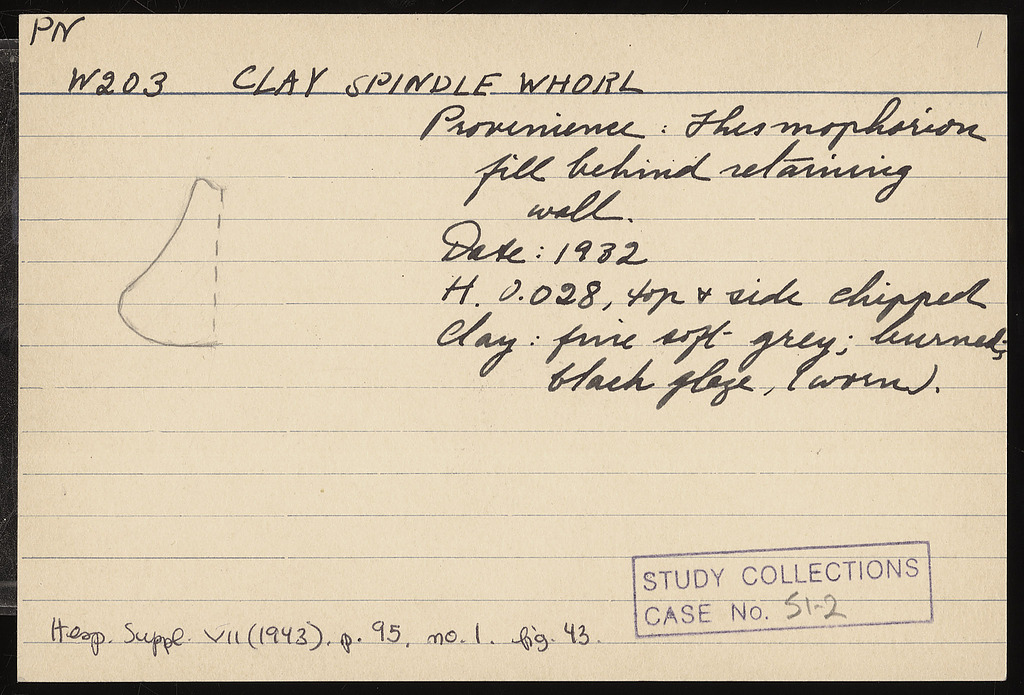 PN
W203 CLAY SPINDLE WHORL
Provenience: Thesmophorion
fill behind retaining
wall.
Date: 1932
H. 0.028, top & side chipped
Clay: fine soft grey; burned;
black glaze, (worn).
STUDY COLLECTIONS
CASE NO. S1-2
Hesp. Suppl. VII (1943), p. 95, no. 1. fig. 43.